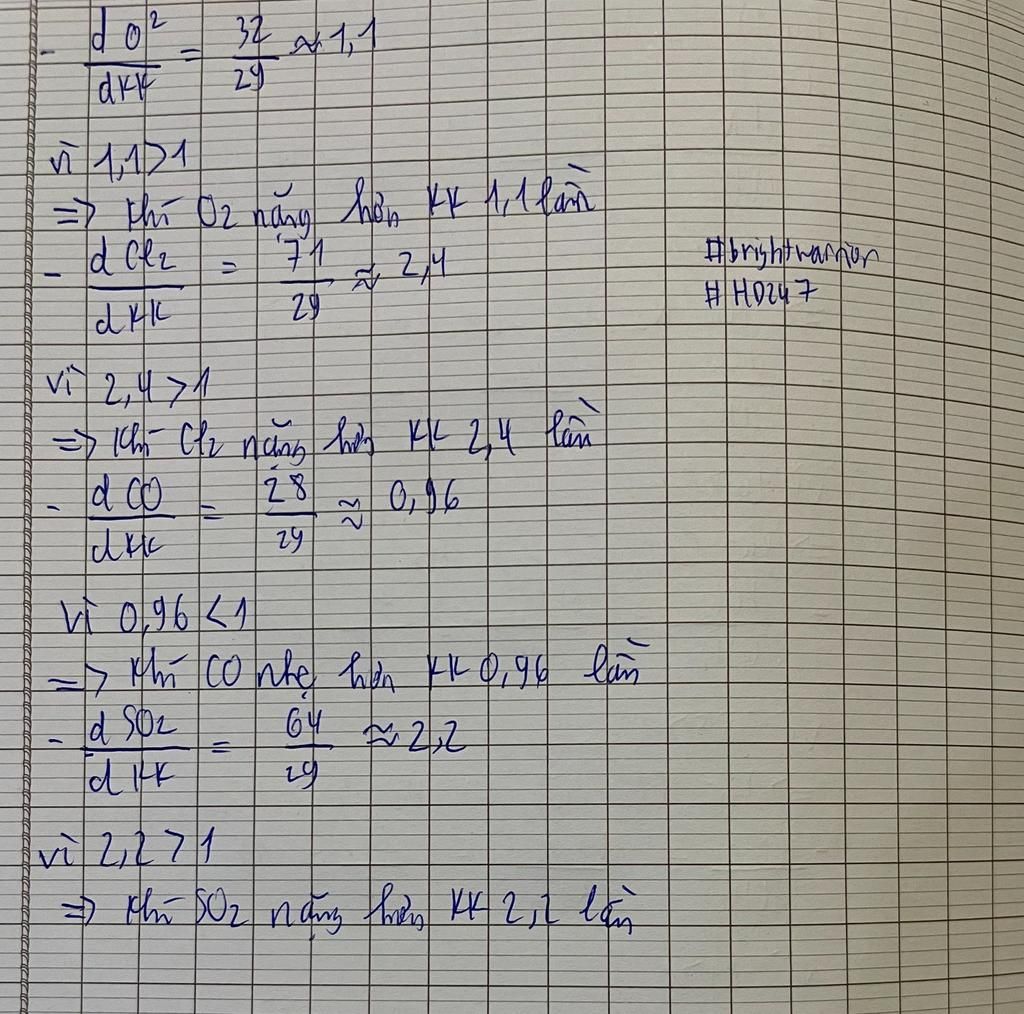 - d O² / dKK = 32 / 29 ≈ 1,1
vì 1,1>1
=> khí O2 nặng hơn KK 1,1 lần
- d Cl2 / dKK = 71 / 29 ≈ 2,4
#brightwarrior
#HD247
vì 2,4 >1
=> khí Cl2 nặng hơn KK 2,4 lần
- d CO / dKK = 28 / 29 ≈ 0,96
vì 0,96 <1
=> khí CO nhẹ hơn KK 0,96 lần
- d SO2 / d KK = 64 / 29 ≈ 2,2
vì 2,2 >1
=> khí SO2 nặng hơn KK 2,2 lần